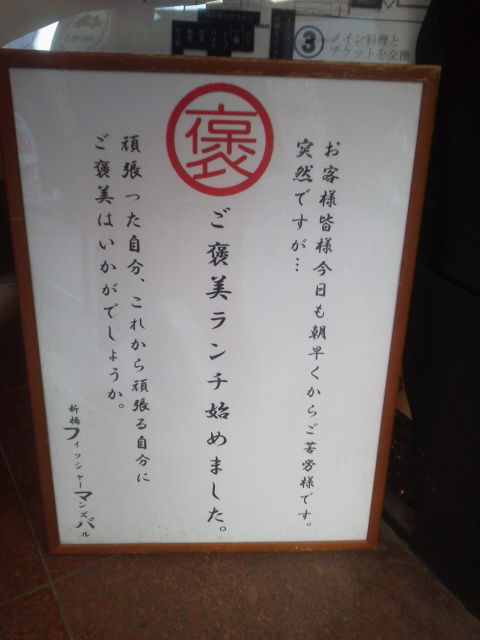 ③ メイン料理と
チケットを交換
お客様皆様今日も朝早くからご苦労様です。
突然ですが…
褒
ご褒美ランチ始めました。
頑張った自分、これから頑張る自分に
ご褒美はいかがでしょうか。
新橋フィッシャーマンズバル